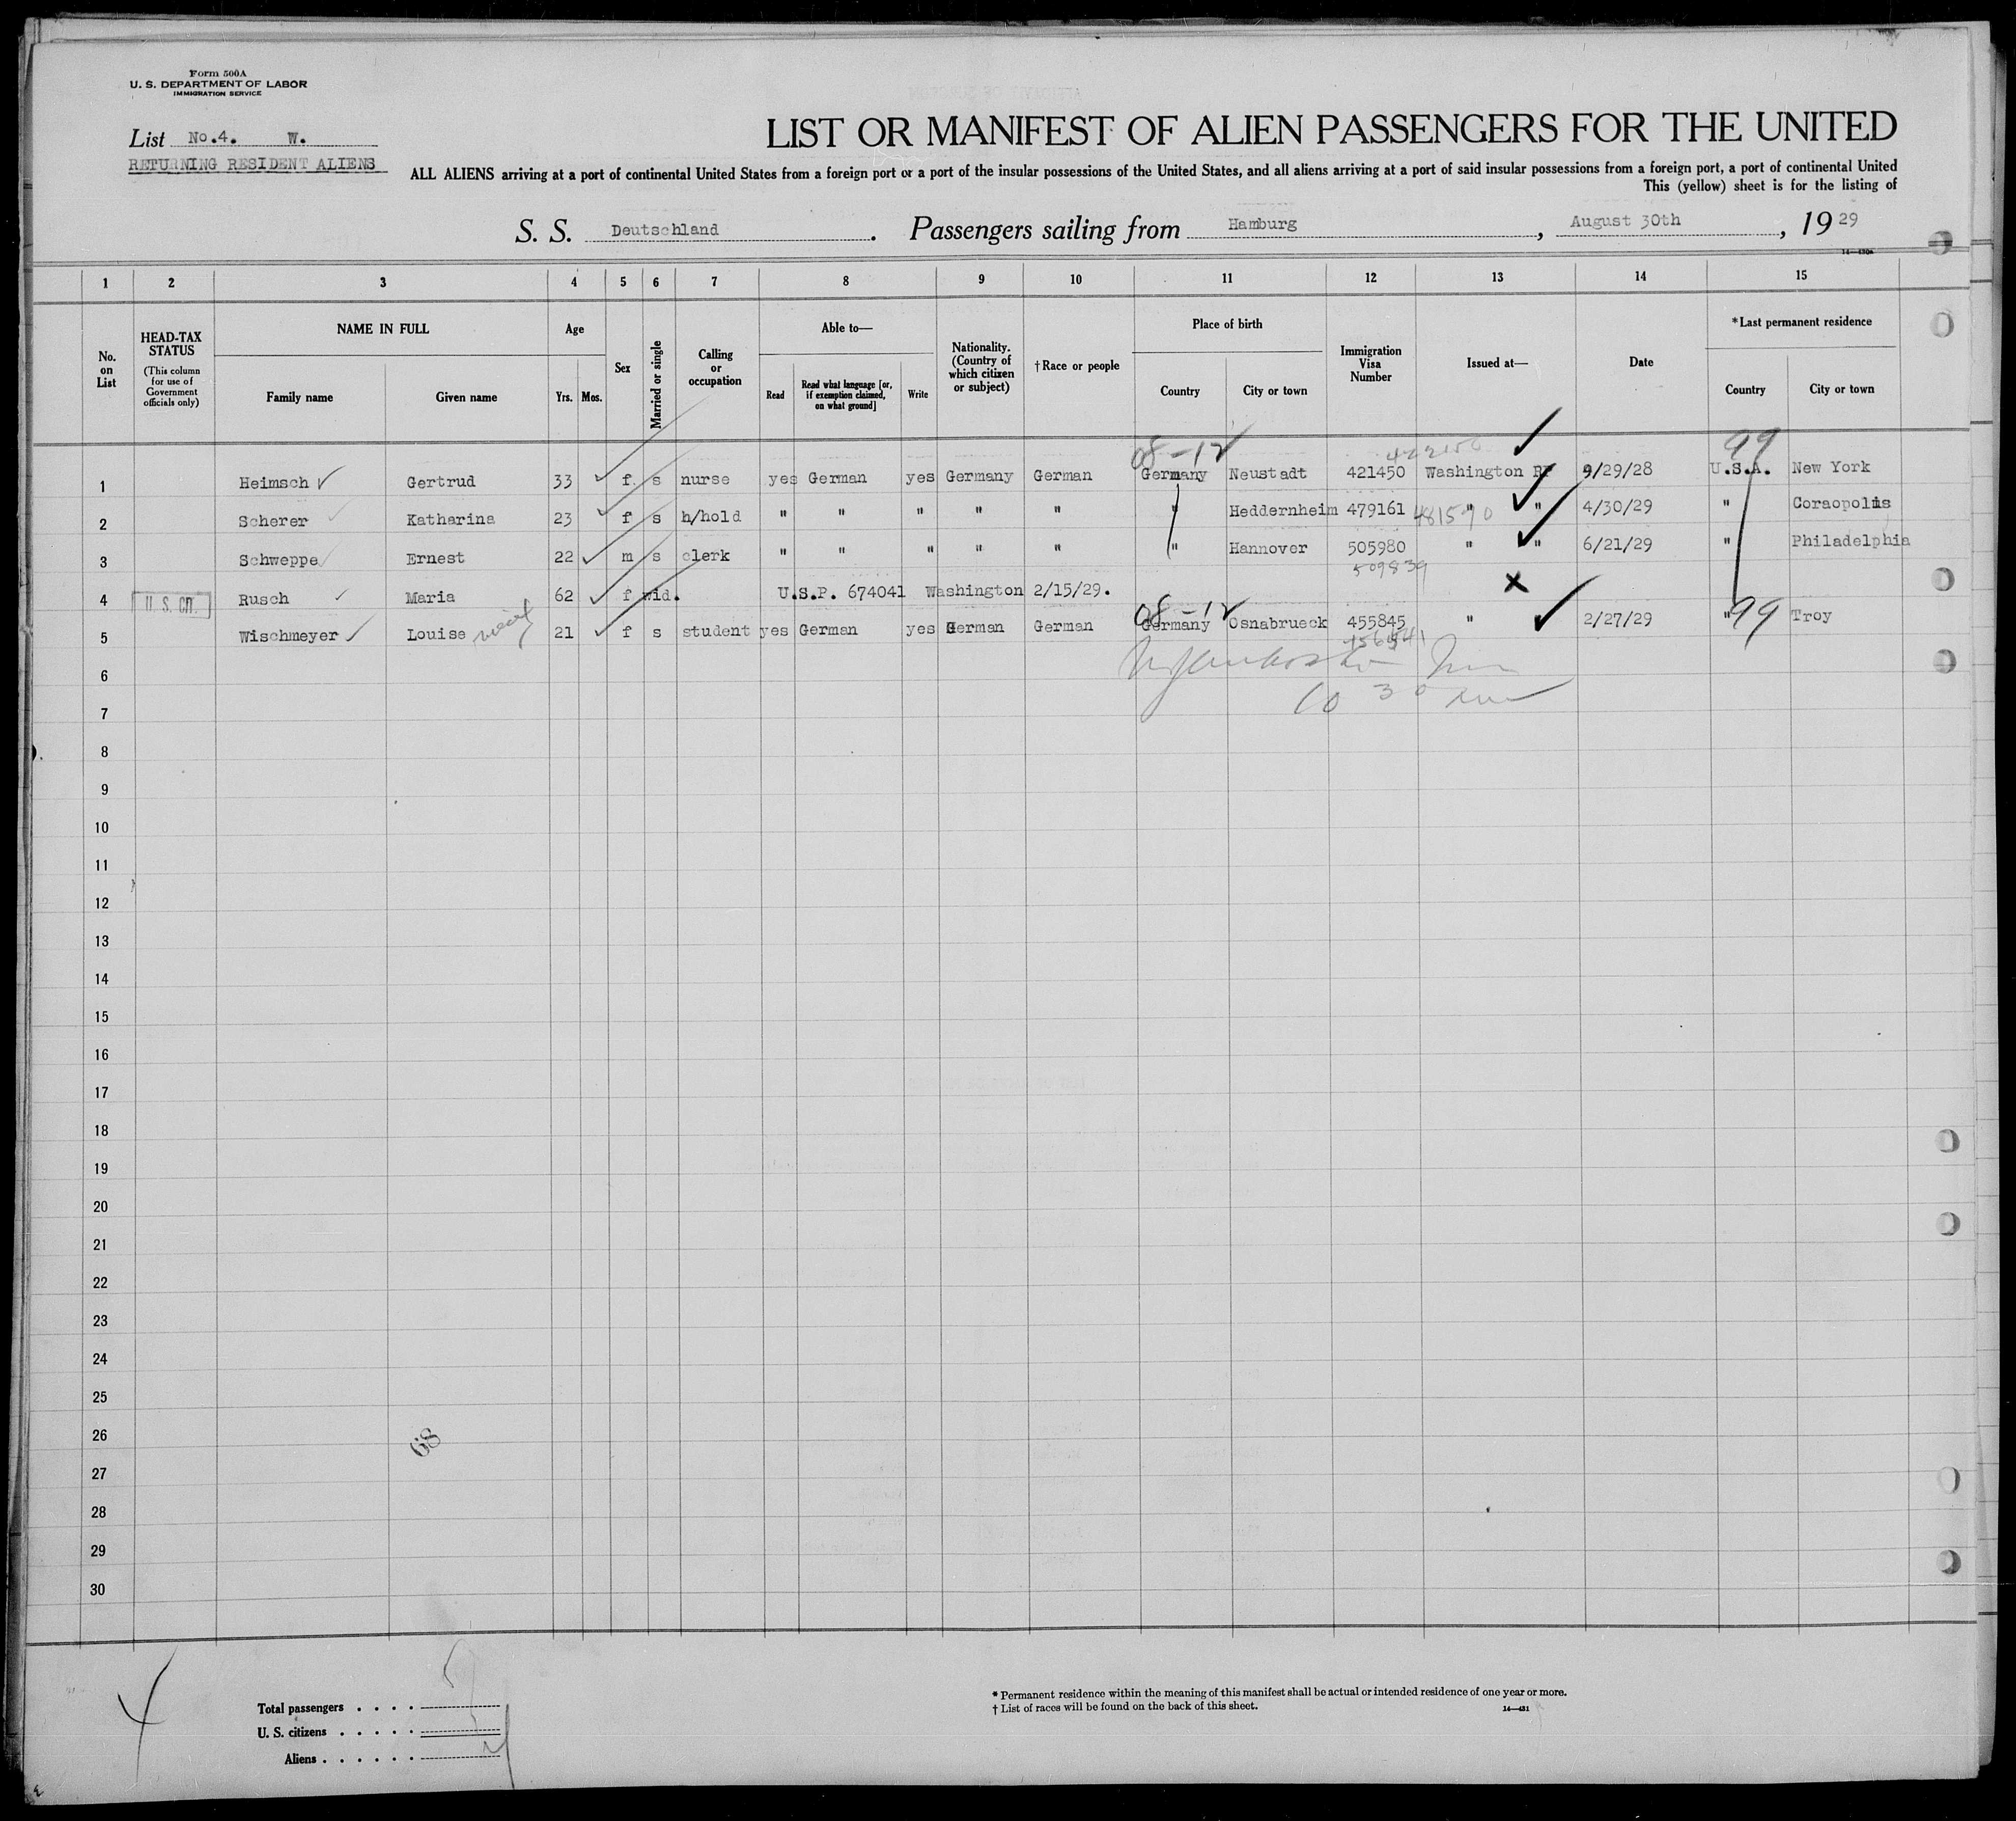 Form 500A
U. S. DEPARTMENT OF LABOR
IMMIGRATION SERVICE
List No.4. W.
RETURNING RESIDENT ALIENS
LIST OR MANIFEST OF ALIEN PASSENGERS FOR THE UNITED
ALL ALIENS arriving at a port of continental United States from a foreign port or a port of the insular possessions of the United States, and all aliens arriving at a port of said insular possessions from a foreign port, a port of continental United
This (yellow) sheet is for the listing of
S. S. Deutschland. Passengers sailing from Hamburg, August 30th, 1929
1 2 3 4 5 6 7 8 9 10 11 12 13 14 15
No. on List
HEAD-TAX STATUS
(This column for use of Government officials only)
NAME IN FULL
Family name Given name
Age
Yrs. Mos.
Sex
Married or single
Calling or occupation
Able to—
Read
Read what language [or, if exemption claimed, on what ground]
Write
Nationality. (Country of which citizen or subject)
† Race or people
Place of birth
Country City or town
Immigration Visa Number
Issued at—
Date
*Last permanent residence
Country City or town
08-12 99
1 Heimsch Gertrud 33 f s nurse yes German yes Germany German Germany Neustadt 421450 Washington RP 9/29/28 U.S.A. New York
2 Scherer Katharina 23 f s h/hold " " " " " " Heddernheim 479161 481590 " " 4/30/29 " Coraopolis
3 Schweppe Ernest 22 m s clerk " " " " " " Hannover 505980 " " 6/21/29 " Philadelphia
509839
4 U. S. CIT. Rusch Maria 62 f wid. U.S.P. 674041 Washington 2/15/29.
08-12 99
5 Wischmeyer Louise 21 f s student yes German yes German German Germany Osnabrueck 455845 " 2/27/29 " Troy
6
10 30
7
8
9
10
11
12
13
14
15
16
17
18
19
20
21
22
23
24
25
26
68
27
28
29
30
4
Total passengers
U. S. citizens
Aliens
* Permanent residence within the meaning of this manifest shall be actual or intended residence of one year or more.
† List of races will be found on the back of this sheet.
14—431